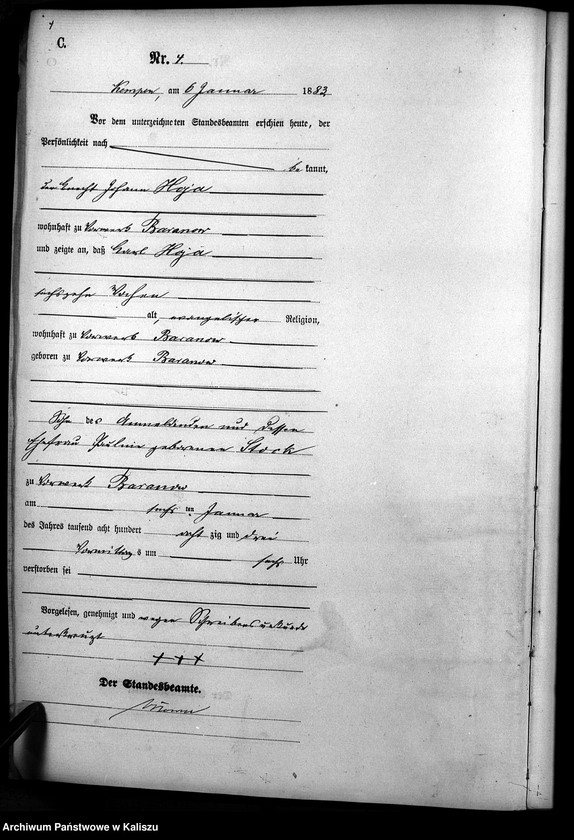 1
C.
Nr. 4.
Kempen, am 6 Januar 1883
Vor dem unterzeichneten Standesbeamten erschien heute, der
Persönlichkeit nach
be kannt,
der Knecht Johann Hoja
wohnhaft zu Vorwerk Baranow
und zeigte an, daß Karl Hoja
sechszehn Wochen
alt, evangelischer Religion,
wohnhaft zu Vorwerk Baranow
geboren zu Vorwerk Baranow
Sohn des Anmeldenden und dessen
Ehefrau Pauline geborenen Stock
zu Vorwerk Baranow
am sechs ten Januar
des Jahres tausend acht hundert acht zig und drei
Vormittag s um sechs Uhr
verstorben sei
Vorgelesen, genehmigt und wegen Schreibensunkunde
unterkreuzt
+++
Der Standesbeamte.
Archiwum Państwowe w Kaliszu